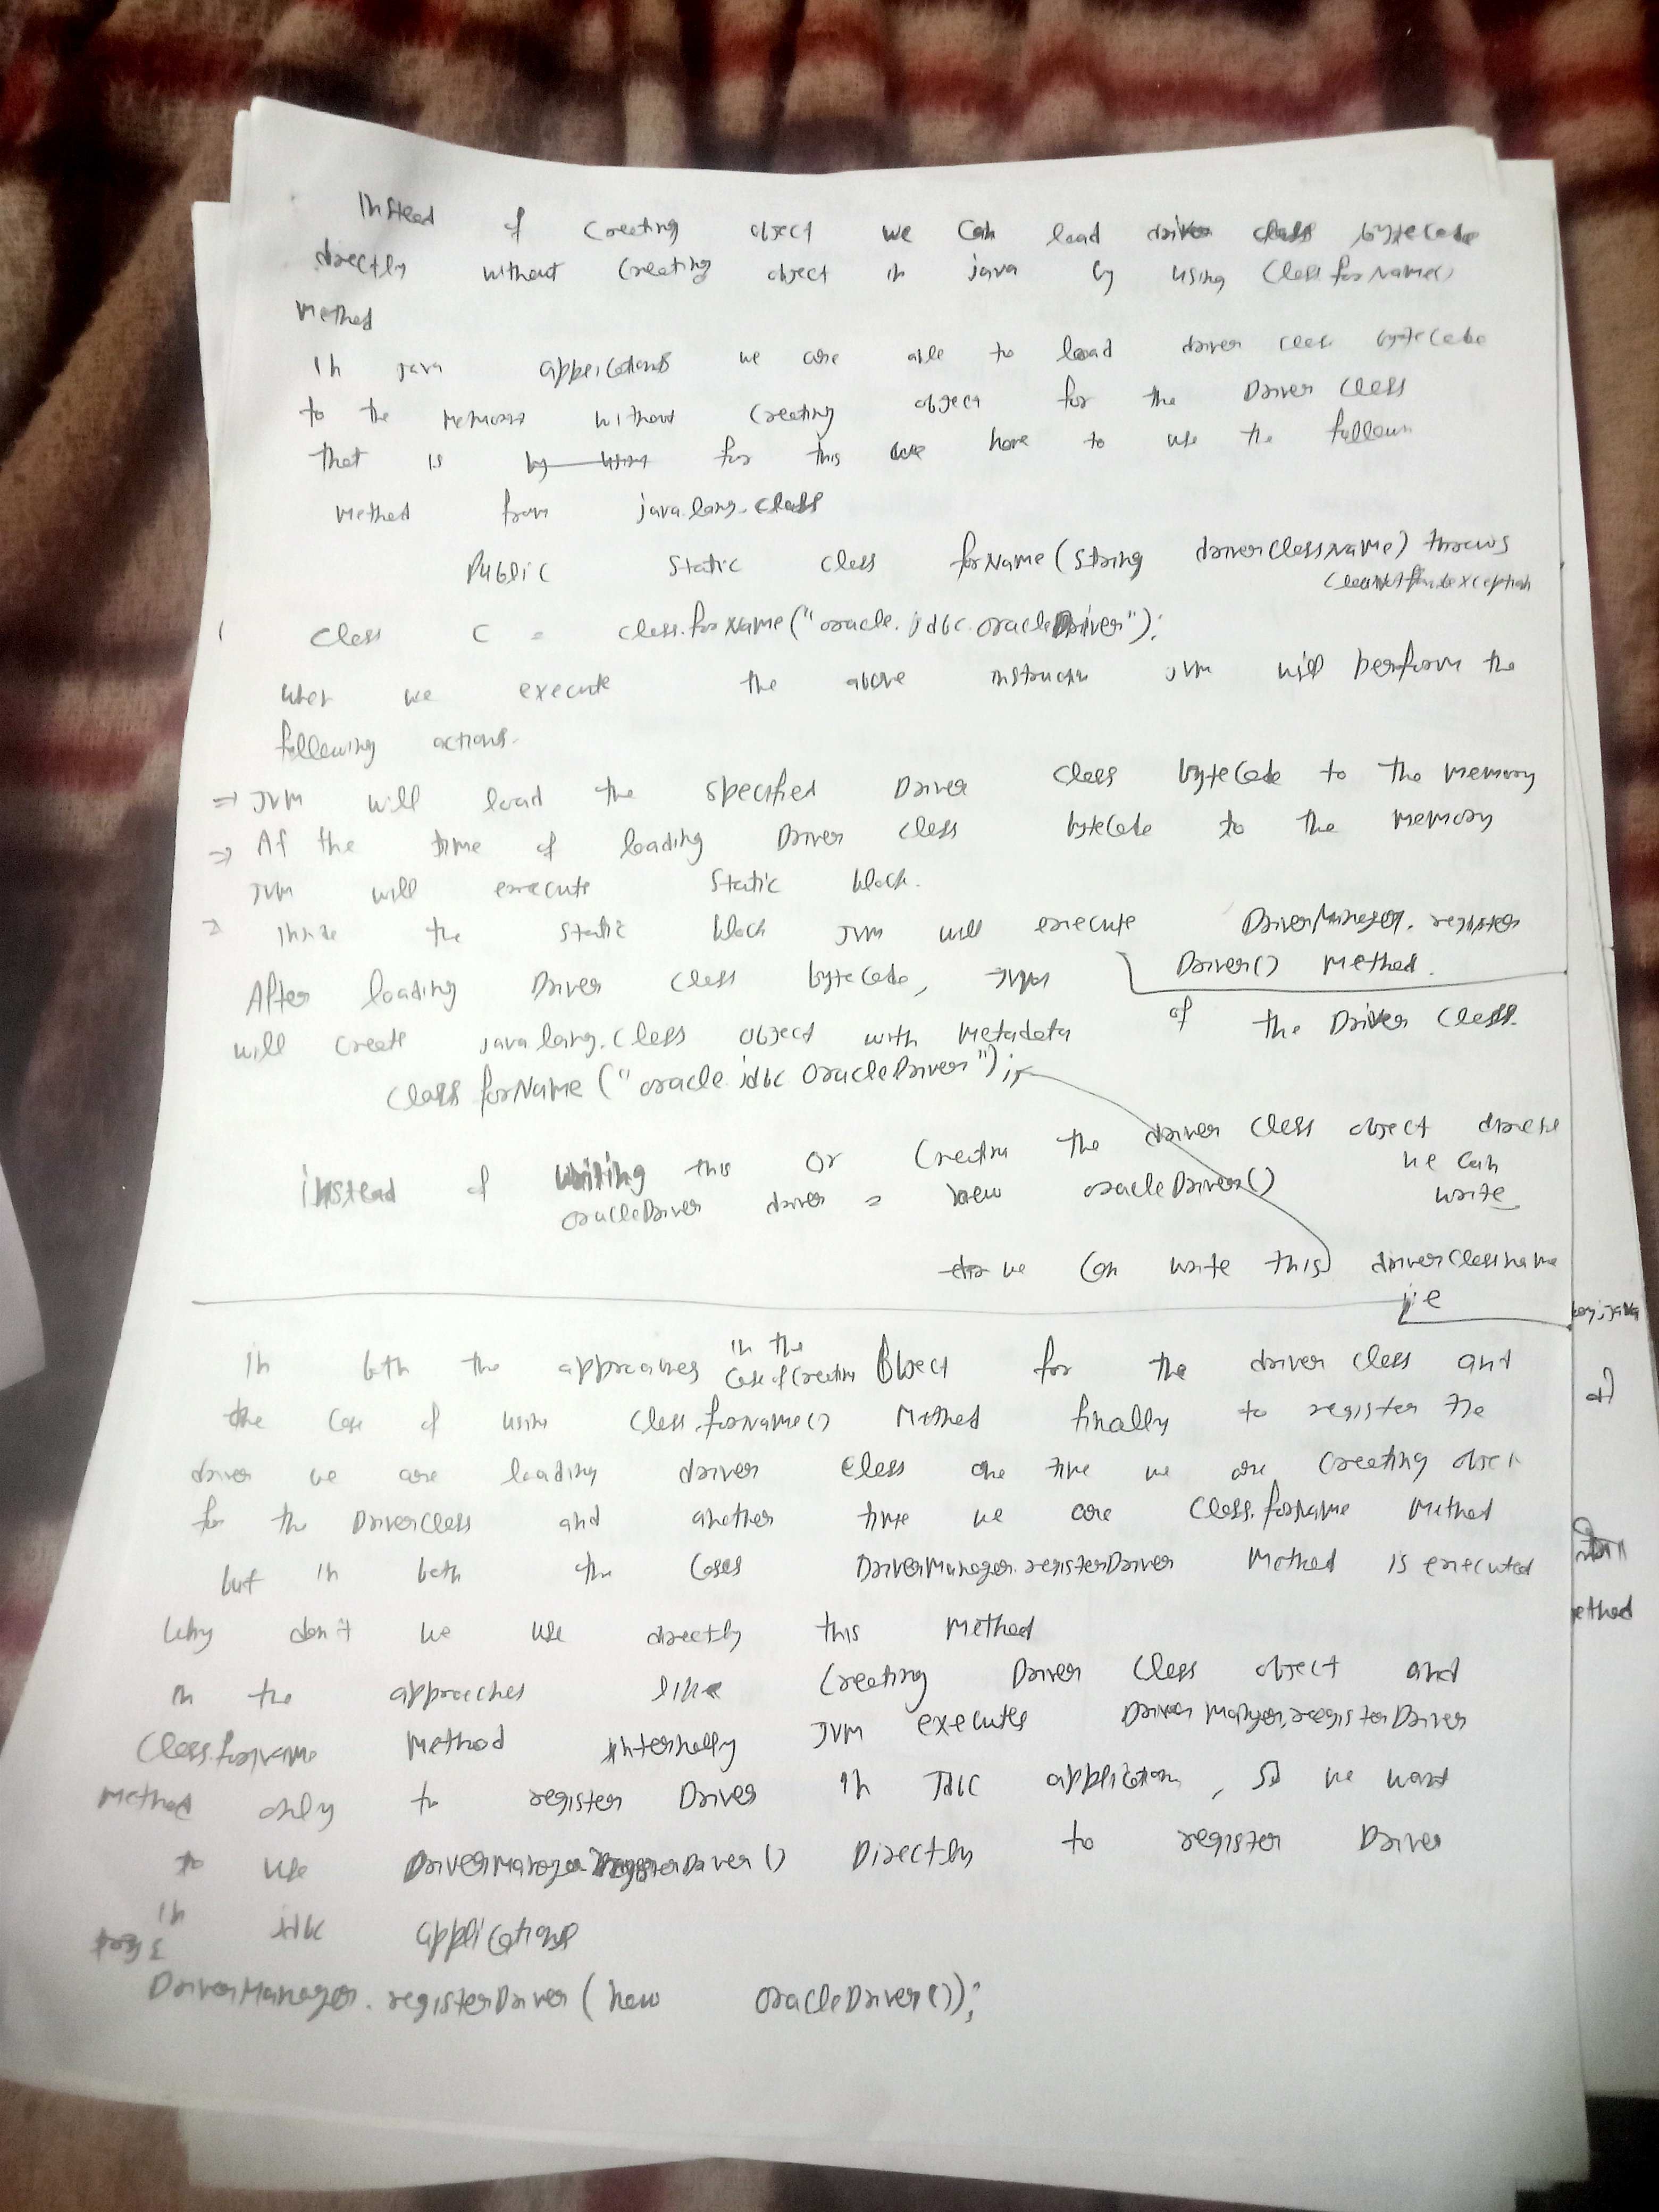 Instead of creating object we can load driver class bytecode
directly without creating object in java by using Class.forName()
Method
In java applications we are able to load driver class bytecode
to the memory without creating object for the Driver class
that is by using for this we have to use the followin
Method from java.lang.class
Public static class forName(String driverClassName) throws
ClassNotFoundException
Class C = class.forName("oracle.jdbc.oracleDriver");
when we execute the above instruction JVM will perform the
following actions.
⇒ JVM will load the specified Driver class bytecode to the memory
⇒ At the time of loading Driver class bytecode to the memory
JVM will execute static block.
⇒ Inside the static block JVM will execute DriverManager.register
Driver() method.
After loading Driver class bytecode, JVM
will create java.lang.class object with metadata of the Driver class.
Class forName("oracle.jdbc OracleDriver");
instead of writing this or creating the driver class object
oracleDriver driver = new oracleDriver() we can
write
we can write this driverclassname
i.e
In both the approaches in the
case of creating Object for the driver class and
the case of using Class.forname() Method finally to register the
driver we are loading driver class one time we are creating object
for the DriverClass and another time we are Class.forname Method
but in both the cases DriverManager.registerDriver Method is executed
Why don't we use directly this Method
in the approaches like creating Driver class object and
Class.forname Method internally JVM executes DriverManager.registerDriver
Method only to register Driver in JDBC application, so we want
to use DriverManager.registerDriver() Directly to register Driver
in jdbc applications
DriverManager.registerDriver(new OracleDriver());
ethod